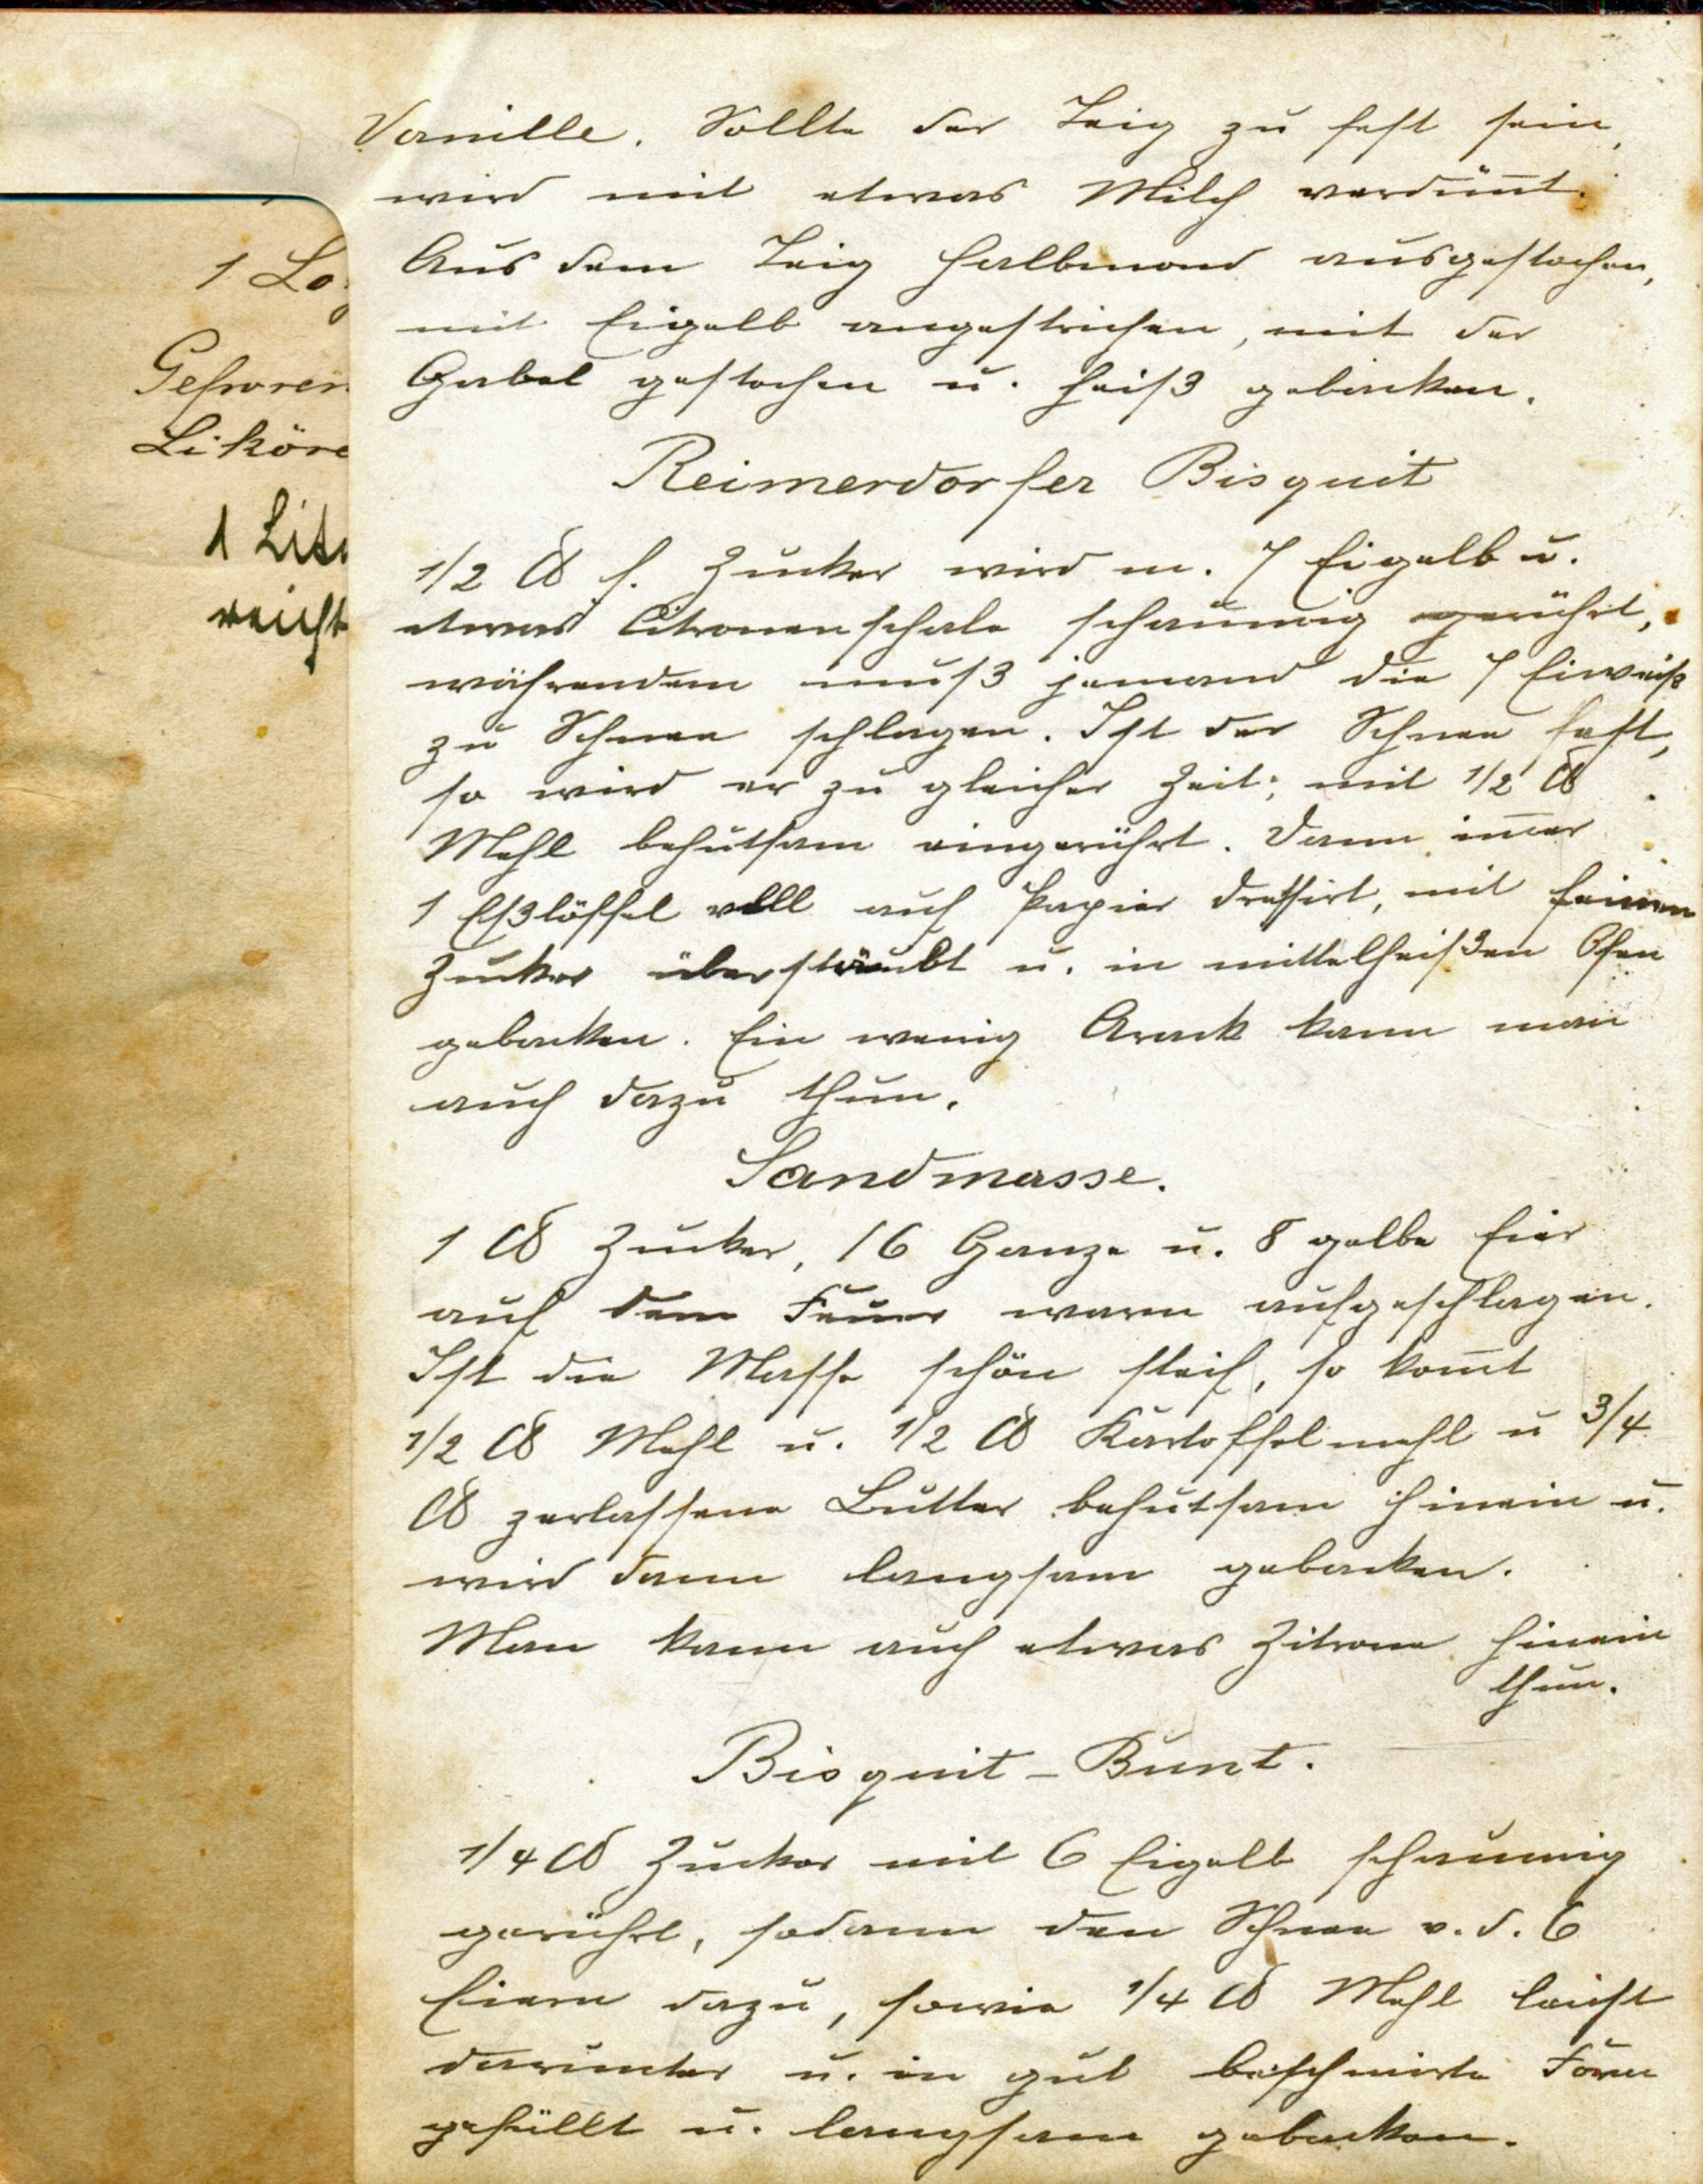 Vanille. Sollte der Teig zu fest sein,
wird mit etwas Milch verdünnt.
Aus dem Teig Halbmond ausgestochen,
mit Eigelb angestrichen, mit der
Gabel gestochen u. heiß gebacken.
Reimerdorfer Bisquit
1/2 ℔ f. Zucker wird m. 7 Eigelb u.
etwas Citronenschale schaumig gerührt,
währendem muß jemand die 7 Eiweiß
zu Schnee schlagen. Ist der Schnee fest,
so wird er zu gleicher Zeit; mit 1/2 ℔
Mehl behutsam eingerührt. Dann im̅er
1 Eßlöffel voll auf Papier dressirt, mit feinem
Zucker überstäubt u. in mittelheißen Ofen
gebacken. Ein wenig Arack kann man
auch dazu thun.
Sandmasse.
1 ℔ Zucker, 16 Ganze u. 8 gelbe Eier
auf dem Feuer warm aufgeschlagen.
Ist die Masse schön steif, so kom̅t
1/2 ℔ Mehl u. 1/2 ℔ Kartoffelmehl u 3/4
℔ zerlassene Butter behutsam hinein u.
wird dann langsam gebacken.
Man kann auch etwas Zitrone hinein
thun.
Bisquit-Bunt.
1/4 ℔ Zucker mit 6 Eigelb schaumig
gerührt, sodann den Schnee v. d. 6
Eiern dazu, sowie 1/4 ℔ Mehl leicht
darunter u. in gut beschmirte Form
gefüllt u. langsam gebacken.
1 Lo
Gefroren
Liköre
1 Lite
reicht